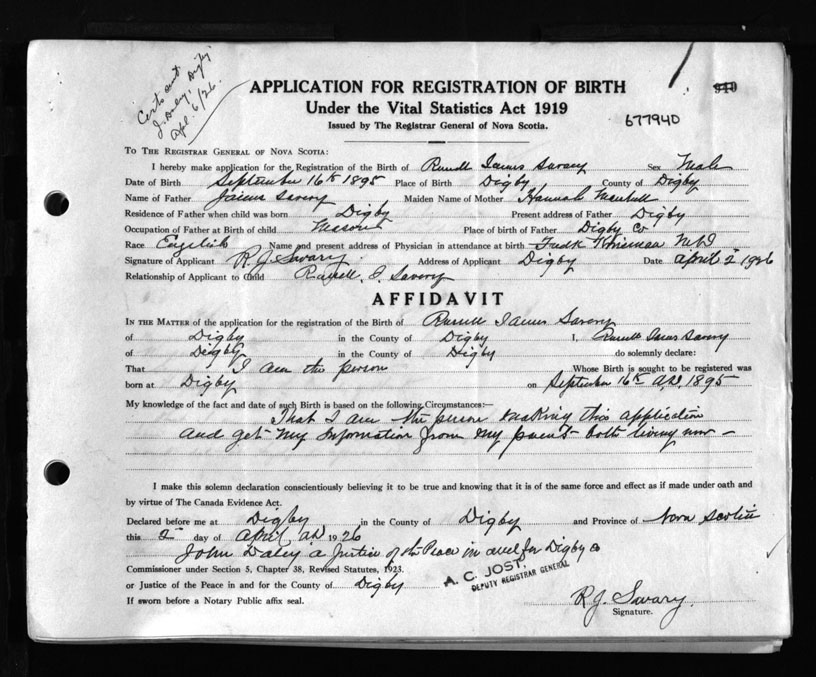 Certs sent
J. Daley, Digby
Apl. 6/26.
APPLICATION FOR REGISTRATION OF BIRTH
940
Under the Vital Statistics Act 1919
Issued by The Registrar General of Nova Scotia.
677940
TO THE REGISTRAR GENERAL OF NOVA SCOTIA:
I hereby make application for the Registration of the Birth of Russell James Savary Sex Male
Date of Birth September 16th 1895 Place of Birth Digby County of Digby
Name of Father James Savary Maiden Name of Mother Hannah
Residence of Father when child was born Digby Present address of Father Digby
Occupation of Father at Birth of child Mason Place of birth of Father Digby Co
Race English Name and present address of Physician in attendance at birth Fredk Kinsman M.D
Signature of Applicant R.J. Savary Address of Applicant Digby Date April 2 1926
Relationship of Applicant to Child Russell. J. Savary
AFFIDAVIT
IN THE MATTER of the application for the registration of the Birth of Russell James Savary
of Digby in the County of Digby I, Russell James Savary
of Digby in the County of Digby do solemnly declare:
That I am the person Whose Birth is sought to be registered was
born at Digby on September 16th AD, 1895
My knowledge of the fact and date of such Birth is based on the following Circumstances:—
That I am the person making this application
and get my information from my parents both living now –
I make this solemn declaration conscientiously believing it to be true and knowing that it is of the same force and effect as if made under oath and
by virtue of The Canada Evidence Act.
Declared before me at Digby in the County of Digby and Province of Nova Scotia
this 2 day of April AD 1926
John Daley a Justice of the Peace in and for Digby Co
Commissioner under Section 5, Chapter 38, Revised Statutes, 1923.
or Justice of the Peace in and for the County of Digby
A. C. JOST,
DEPUTY REGISTRAR GENERAL
If sworn before a Notary Public affix seal.
R.J. Savary.
Signature.